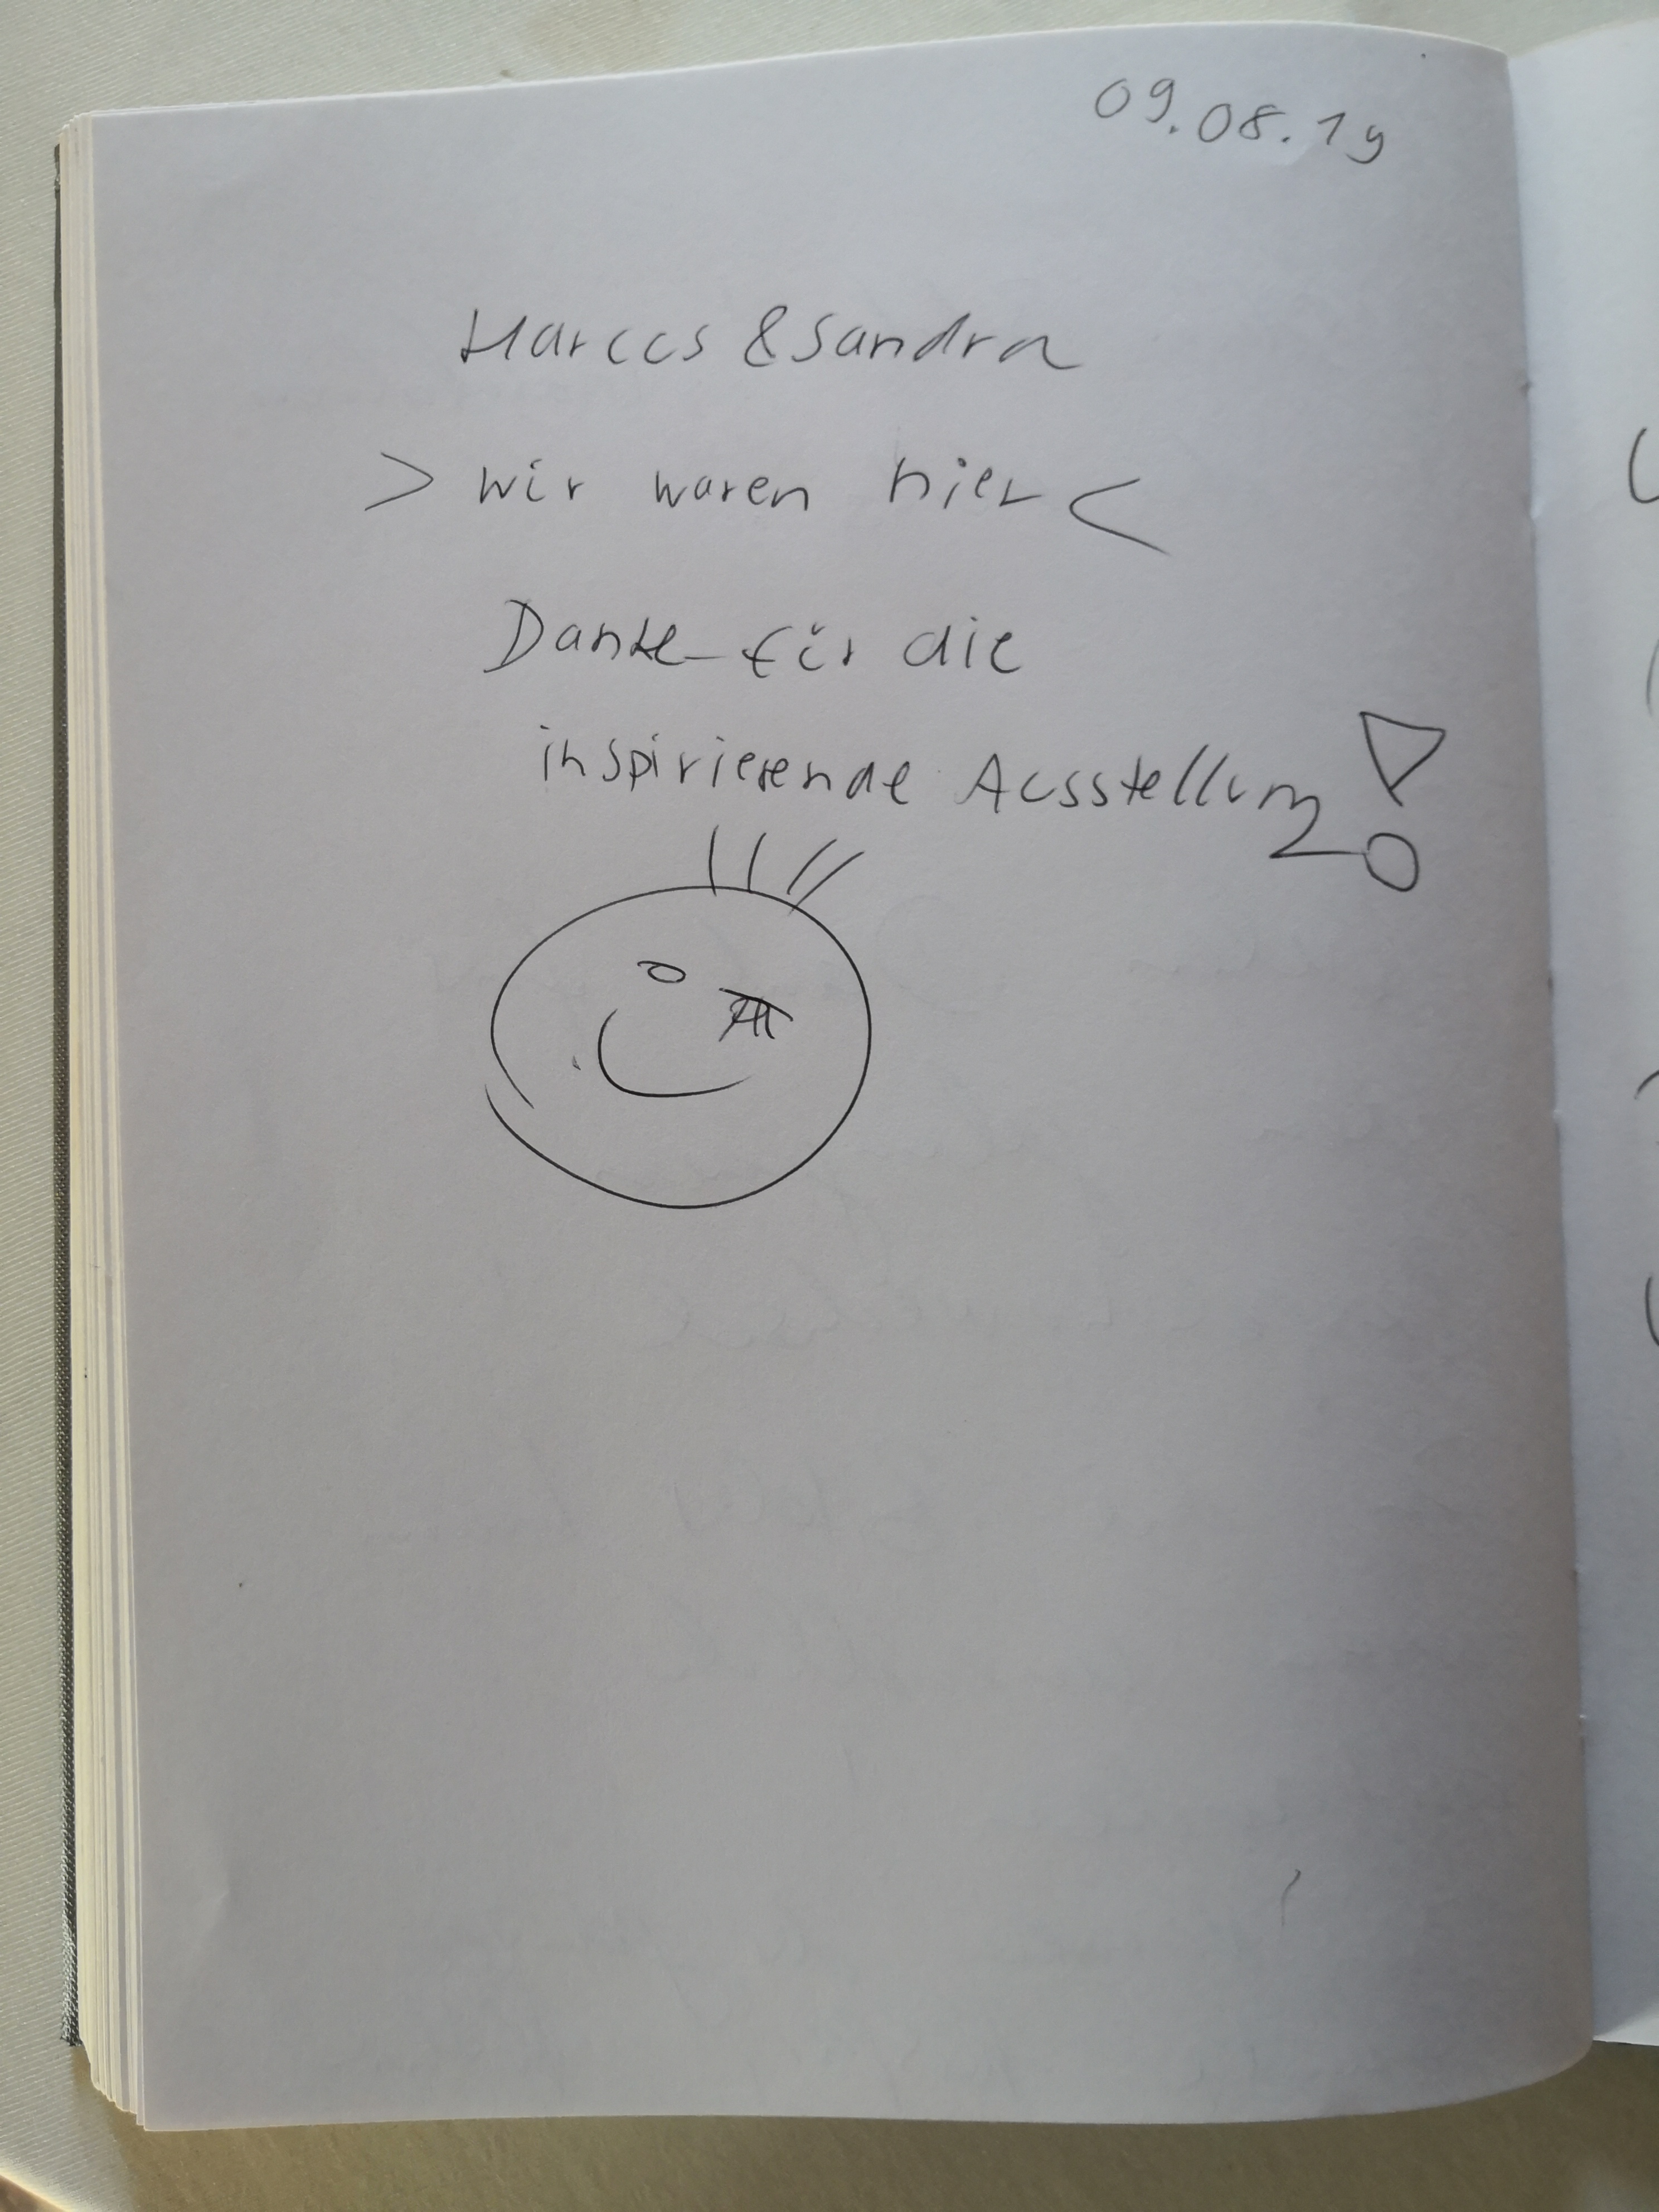 09.08.19
Marcus & Sandra
> wir waren hier <
Danke für die
inspirierende Ausstellung!